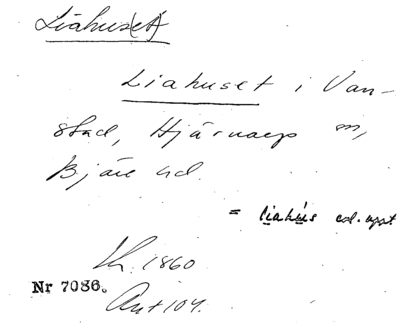 Liahus(et)
Liahuset i Van-
stad, Hjärnarps sn,
Bjäre hd.
= liahús enl. uppt.
Kh. 1860
Nr 7086.
Ant 104.